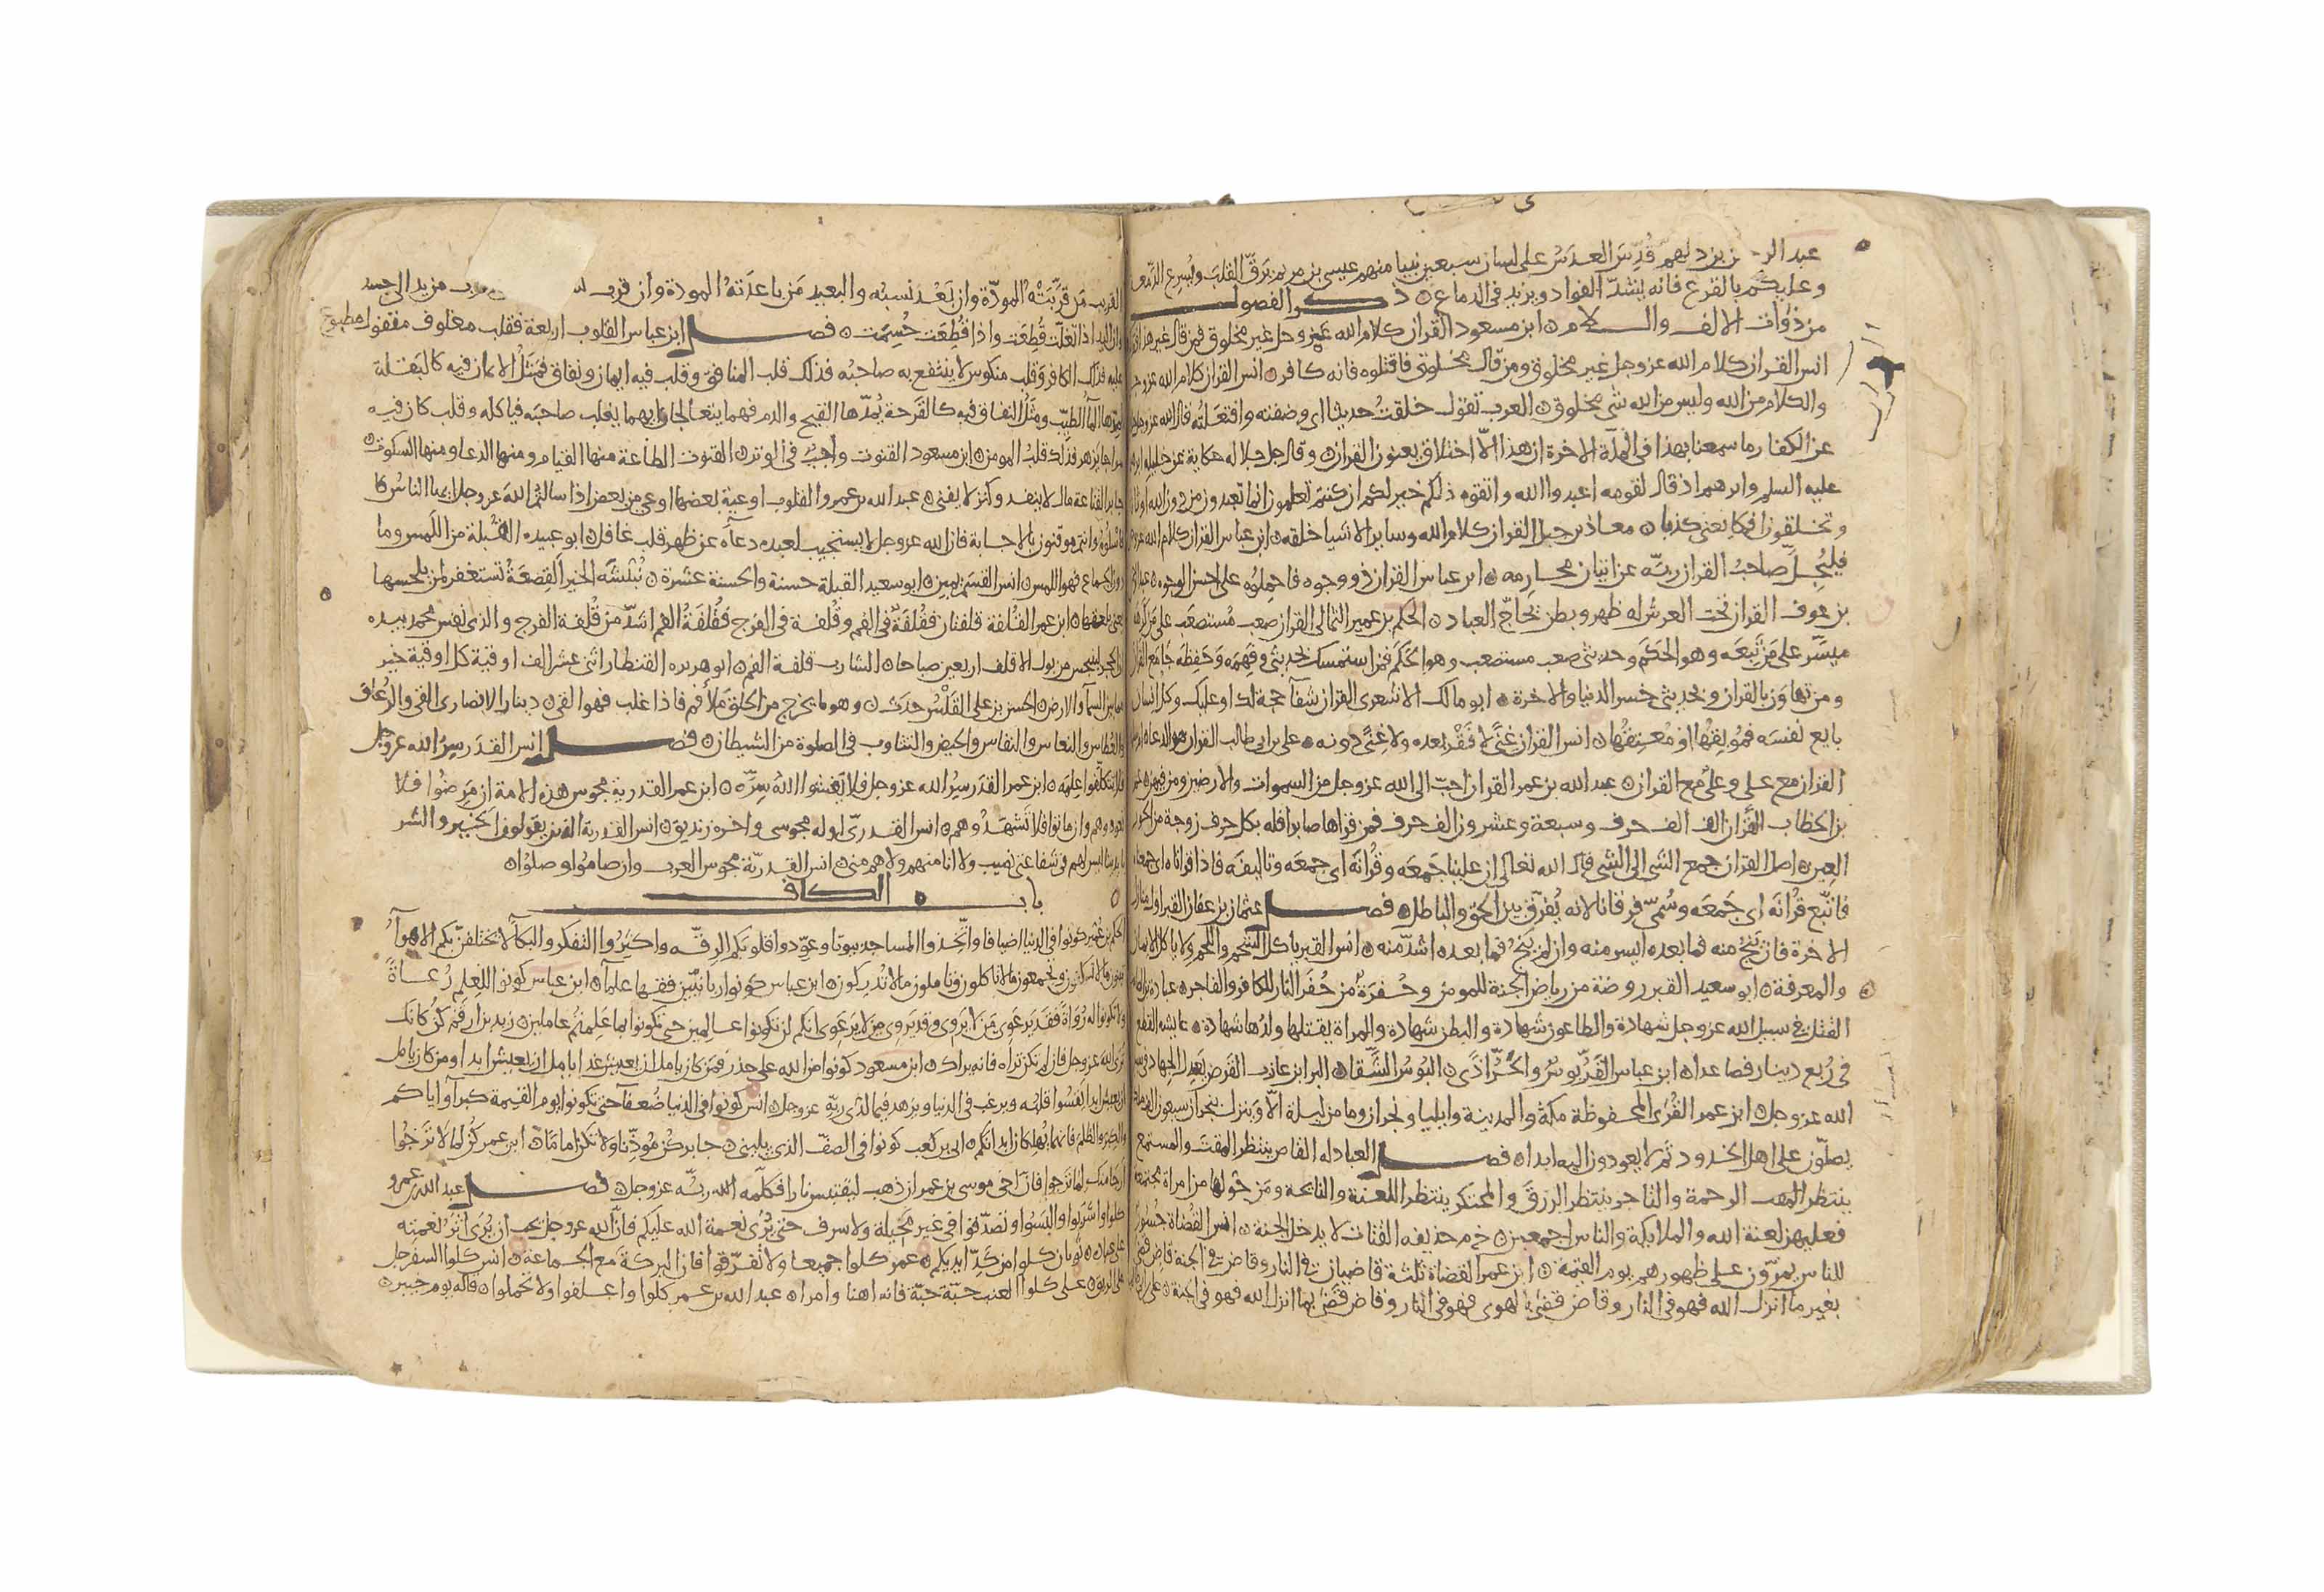 عبد الر ن بن دلهم قُدِّسَ العدَسُ على لسان سبعين نبيا منهم عيسى بن مريم يرقّ القلبَ ويُسرع الدّمعَ
وعليكم بالقرع فانه يشدّ الفواد ويزيد في الدماغ ذكر الفصول
من ذوات الالف والسلام ابن مسعود القران كلام الله عز وجل غير مخلوق فمن قال غير هذا
انس القران كلام الله عز وجل غير مخلوق ومن قال مخلوق فاقتلوه فانه كافر انس القران كلام الله عز وجل
والكلام من الله وليس من الله شى مخلوق العرب تقول خلقتُ حديثا اى وضعته وافتعلتُه قال الله عز وجل
عن الكفار ما سمعنا بهذا في الملة الاخرة ان هذا الّا اختلاق يعنون القران وقال جل جلاله حكاية عن خليله
عليه السلم وابرهيم اذ قال لقومه اعبدوا الله واتقوه ذلكم خير لكم ان كنتم تعلمون انما تعبدون من دون الله اوثانا
وتخلقون افكا يعنى كذبا معاذ بن جبل القران كلام الله وساير الاشيا خلقه ابن عباس القران كلام الله عز وجل
فليُجلّ صاحبُ القران ربّه عن اتيان محارمه ابن عباس القران ذو وجوه فاحملوه على احسن الوجوه
بن عوف القران تحت العرش له ظهر وبطن يحاجّ العباد الحكم بن عمير الثمالي القران صعب مُستصعَب على من
ميسّر على مَن تَبِعَه وهو الحَكَم وحديثى صعب مستصعب وهو الحَكَم فمن استمسك بحديثى وفَهِمَه وَحَفِظَه جَا مع القران
ومن تهاوَن بالقران وبحديثى خسر الدنيا والاخرة ابو مالك الاشعرى القران حجة لك او عليك وكل انسان
بايع نفسَه فمُوبِقُها او مُعتِقُها انس القران غِنًى لا فَقْر بعده ولا غِنًى دونه على بن ابى طالب القران هو الدعاء
القران مع على وعلىٌ مع القران عبد الله بن عمر القران احبّ الى الله عز وجل من السموات والارضين ومن فيهن
بن الخطاب القُرآن الف الف حرف وسبعة وعشرون الف حرف فمن قراها صابرا فله بكل حرف زوجة من الحور
العين اصل القران جمع الشى الى الشى قال الله تعالى ان علينا جَمعَه وقُرانَه اى جمعَه وتاليفَه فاذا قراناه اى جمعناه
فاتّبع قُرانَه اى جَمعَه وسُمىّ فرقانا لانه يُفرّق بين الحق والباطل فصل عثمان بن عفان القبر اول منازل
الاخرة فان يَنجُ منه فما بعده ايسر منه وان لم يَنجُ فما بعده اشدّ منه انس القبر ياكل الشحم واللحم ولا ياكل الايمان
والمعرفة ابو سعيد القبر روضة من رياض الجنة للمومن وحُفرَةٌ من حُفَر النار للكافر والفاجر عبادة بن الصامت
القتل في سبيل الله عز وجل شهادة والطاعون شهادة والبطن شهادة والمراة يقتلها ولدُها شهادة عايشه القطع
في رُبع دينار فصاعدا ابن عباس القَرّ بوسٌ والحَرّ اذًى البُوسُ الشَّقا البرا بن عازب القرض يَعدِل الجهاد
الله عز وجل ابن عمر القُرى المحفوظة مكة والمدينة وايليا ونجران وما من ليلة الّا ويَنزل بنجران سبعون الف ملك
يصلّون على اهل الاخدود ثم لا يعودون اليه ابدا فصل العبادله القاص ينتظر المقت والمستمع
ينتظر الرحمة والتاجر ينتظر الرزقَ والمحتكر ينتظر اللعنة والنايحة ومَن حولها من امراة مجتمعة
فعليهن لعنة الله والملايكة والناس اجمعين حذيفه القتات لا يدخل الجنة انس القُضاة جُسُور
للناس يمرّون على ظهورهم يوم القيمة ابن عمر القضاة ثلثة قاضيان في النار وقاض في الجنة قاض قضى
بغير ما انزل الله فهو في النار وقاض قضى بالهوى فهو في النار وقاض قضى بما انزل الله فهو في الجنة
القريب مَن قرّبَتْهُ المودّة وان بَعُدَ نسبُه والبعيد مَن باعدَته المودة وان قرب من يد الى جسد
وان اليد اذا تعلّت قُطِعَت واذا قُطِعَت حُسِمَت فصل ابن عباس القلوب اربعة فقلب مغلوف مقفول مطبوع
عليه فذلك الكافر وقلب منكوس لا ينتفع به صاحبُه فذلك قلب المنافق وقلب فيه ايمان ونفاق فمَثَلُ الايمان فيه كالبَقلة
يمدّها المآ الطيّب ومثَلُ النفاق فيه كالقَرحة يُمدّها القيح والدم فهما يتعالجان ايهما يغلب صاحبَه فياكله وقلب كان فيه
سراجا يزهر فذلك قلب المومن ابن مسعود القنوت واجبٌ في الوتر القنوت الطاعة منها القيام ومنها الدعا ومنها السكوت
جابر القناعة مال لا ينفد وكنز لا يفنى عبد الله بن عمرو القلوب اوعية بعضها اوعى من بعض اذا سالتم الله عز وجل ايها الناس
فاسلوه وانتم موقنون بالاجابة فان الله عز وجل لا يستجيب لعبده دعآه عن ظهر قلب غافل ابو عبيده القُبلة من اللمس وما
دون الجماع فهو اللمس انس القسم يمين ابو سعيد القبلة حسنة والحسنة عشرة نُبَيشه الخير القصعَة تستغفر لمن يلحسها
يعنى يلعقها ابن عمر القُلفة قلفتان فقُلفَة في الفم وقُلفة في الفرج فقُلفَةُ الفم اشدّ من قُلفة الفرج والذى نفس محمد بيده
من بول الاقلف اربعين صباحا الشارب قلفة الفم ابو هريره القنطار اثنى عشر الف اوقية كل اوقية خير
مما بين السمآ والارض الحسن بن على القَلْسُ حدَث وهو ما يخرج من الحلق مَلأ فم فاذا غلب فهو القى دينار الانصارى القى والرُعاف
والعُطاس والنعاس والنفاس والحيض والتثاوب في الصلوة من الشيطان فصل انس القدَر سِرّ الله عز وجل
فلا تتكلّفوا عِلمَه ابن عمر القدَر سرُّ الله عز وجل فلا تفشوا للهِ سِرّه ابن عمر القدرية مجوس هذه الامة ان مَرِضُوا فلا
تعودوهم وان ماتوا فلا تَشهَدُوهم انس القدرىّ اوله مجوسى واخره زنديق انس القدرية الذين يقولون الخير والشر
بايدينا ليس لهم في شفاعتى نصيب ولا انا منهم ولا هم منى انس القدريّة مجوس العرب وان صاموا وصلوا
باب الكاف
الحكم بن عمير كونوا في الدنيا اضيافا واتّخذوا المساجد بيوتا وعوّدوا قلوبكم الرِقّه واكثِرُوا التفكر والبكآ لا تختلفنّ بكم الاهوآ
تبنون ما لا تسكنون وتجمعون ما لا تاكلون وتاملون ما لا تُدرِكون ابن عباس كونوا ربانيّين فقها علمآ ابن عباس كونوا للعِلم رُعاةً
ولا تكونوا له رُواة فقد يَرعَوِى مَن لا يَروِى وقد يَروِى مَن لا يَرعَوِى انكم لن تكونوا عالمين حتى تكونوا بما عَلِمتم عاملين زيد بن ارقم كن كانك
ترى الله عز وجل فان لم تكن تراه فانه يراك ابن مسعود كونوا من الله على حذر فمَن كان يامل ان يعيش غدا يامل ان يعيش ابدا ومن كان يامل
ان يعيش ابدا يَقسُوا قلبُه ويرغب في الدنيا ويزهد فيما لدَى ربّه عز وجل انس كونوا في الدنيا ضُعفآ حتى تكونوا يوم القيمة كبرآ واياكم
والضِرّ والظلم فانهما يُهلكان ابدانكم ابى بن كعب كونوا في الصفّ الذى يلينى جابر كن مُوذّنا ولا تكن اماما ابن عمر كُن لما لا تَرجُوا
ارجا منك لما ترجوا فان اخى موسى بن عمران ذهب ليقتبس نارا فكلّمه ربّه عز وجل فصل عبد الله بن عمرو
كلوا واشربوا والبَسُوا وتصدّقوا في غير مَخيلة ولا سرف حتى يُرى نعمة الله عليكم فانّ الله عز وجل يحب ان يُرى اثَرُ نعمته
على عبده ثوبان كلوا من كَدّ ايديكم عمر كلوا جميعا ولا تفرّقوا فان البركةَ مع الجماعة انس كلوا السفرجل
على الريق على كلوا العنب حَبّة حَبّة فانه اهنا وامرا عبد الله بن عمر كلوا واعلفوا ولا تحملوا قاله يوم خيبر